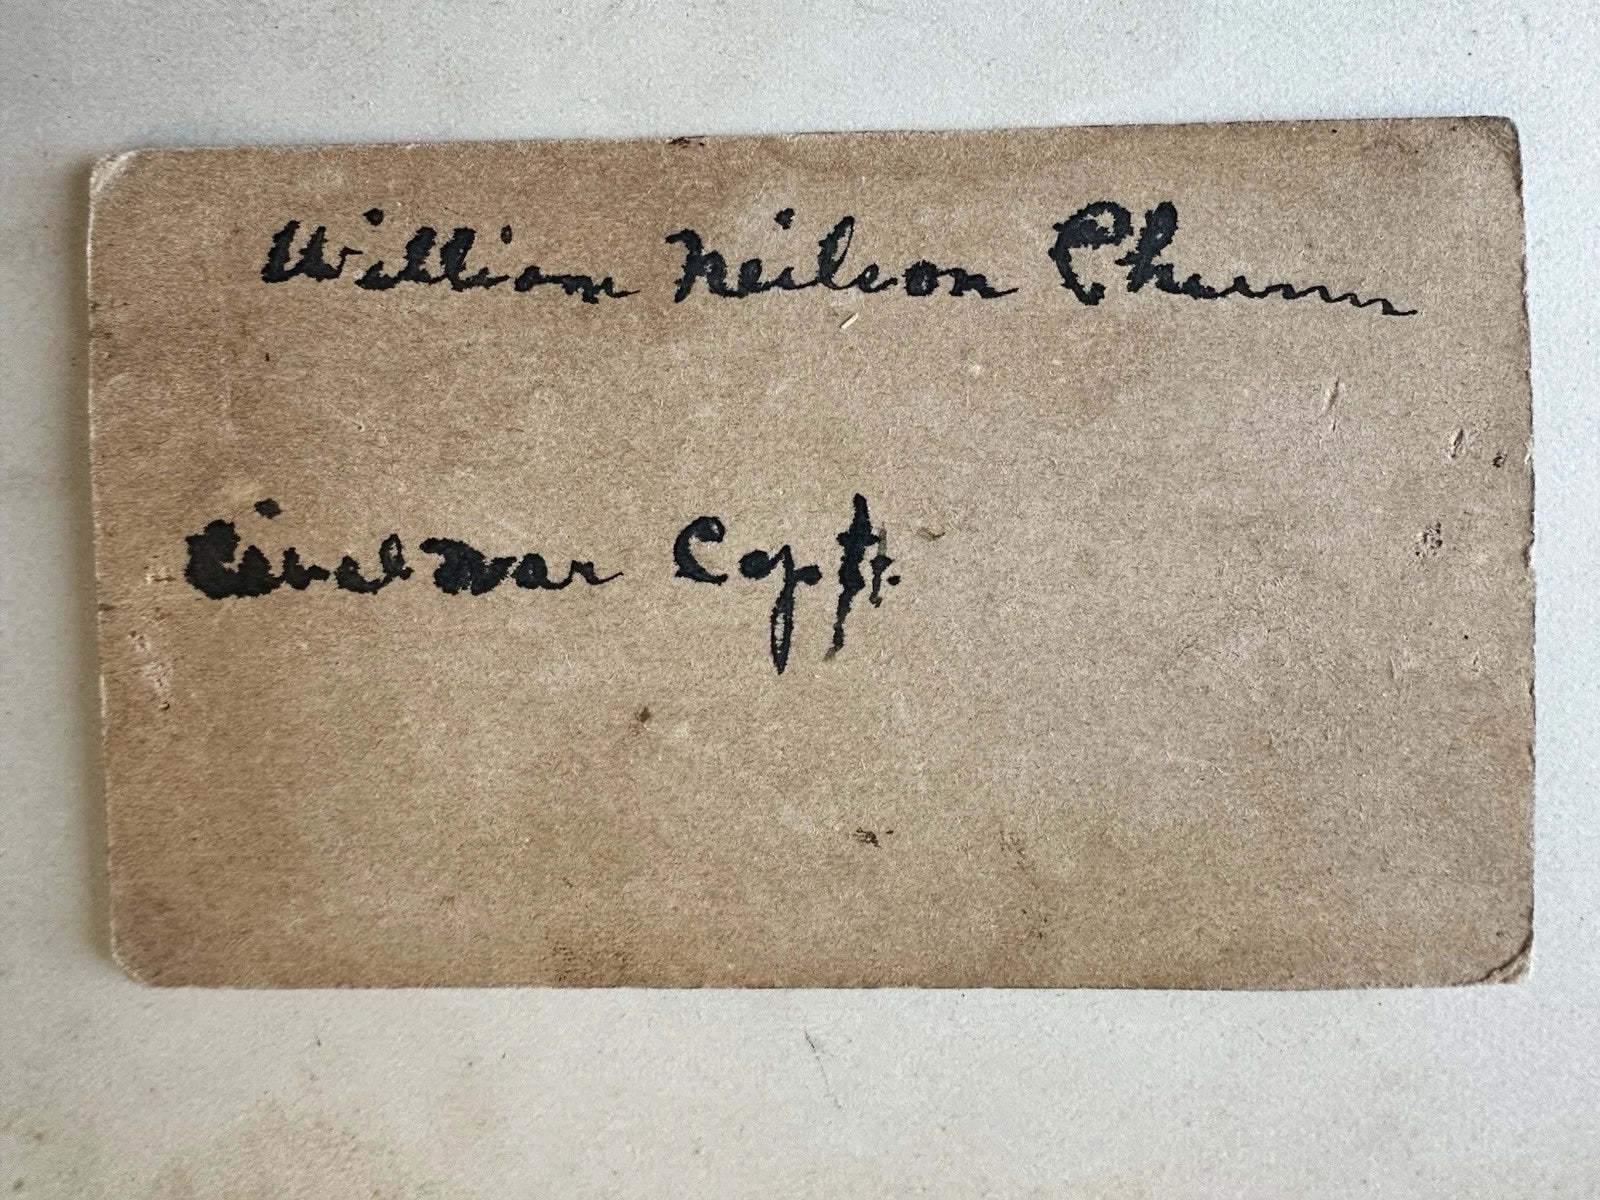 William Neilson Chunn
Civil War Capt.